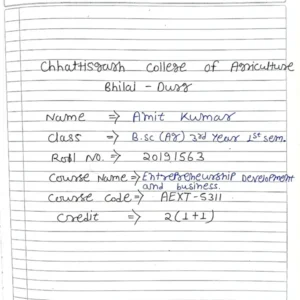 Chhattisgarh College of Agriculture
Bhilai - Durg
Name ⇒ Amit Kumar
Class ⇒ B.sc (Ag) 3rd Year 1st sem.
Roll NO. ⇒ 20191563
Course Name ⇒ Entrepreneurship Development
and business.
Course Code ⇒ AEXT-5311
Credit ⇒ 2(1+1)